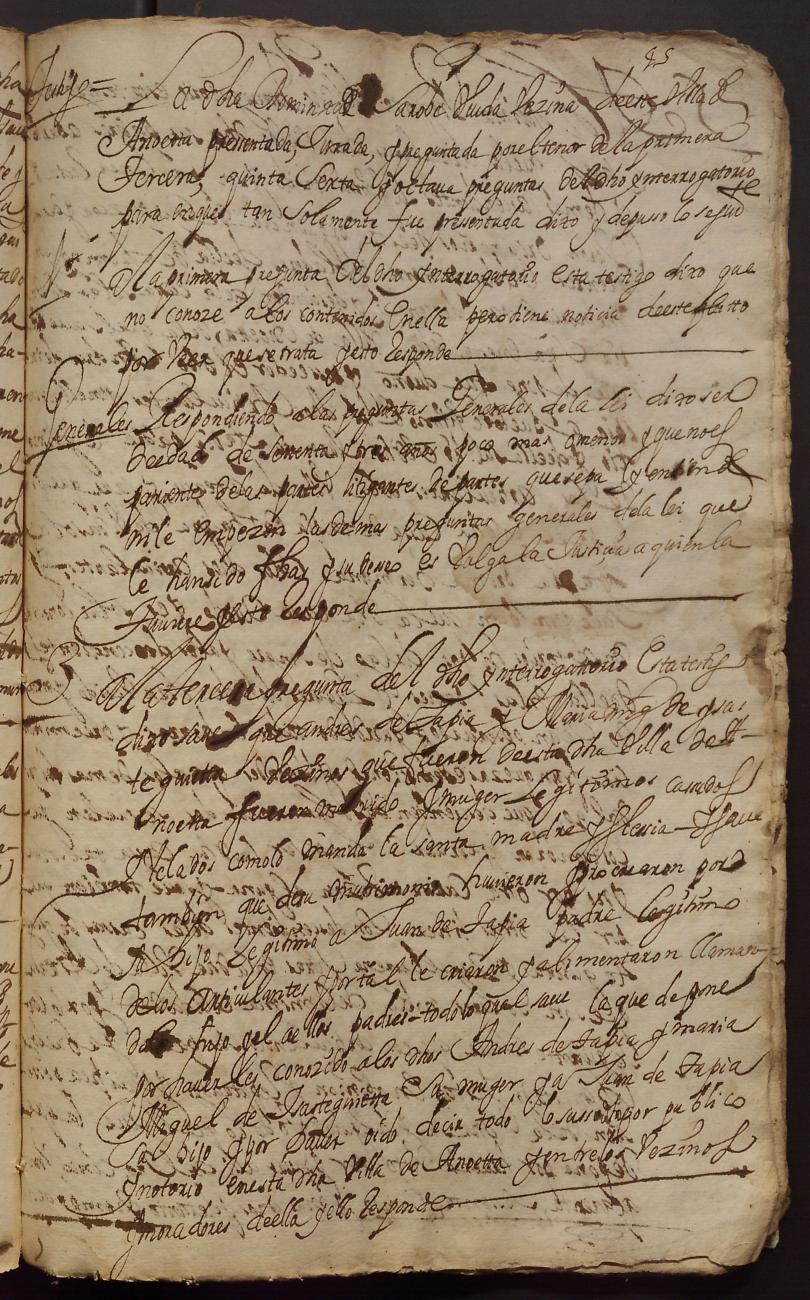 45
La dha Dominga de Larode Viuda Vezina deesta Villa de
Anoetta presentada, Jurada, y preguntada por el tenor de la primera
tercera, quinta sexta y octava preguntas del dho ynterrogatorio
para en que tan solamente fue presentada dixo y depuso lo seguiete
1 A la primera pregunta del dho ynterrogatorio esta testigo dixo que
no conoze a los contenidos en ella pero tiene noticia deeste pleito
por veer que se trata y esto responde
Generales Respondiendo a las preguntas Generales de la lei dixo ser
de edad de settenta y tres años poco mas o menos y que no es
pariente de las partes litigantes de partes que sepa y entiende
ni le empezen las demas preguntas generales de la lei que
le han sido fhas y su deseo es Valga la Justicia a quien la
tuviere y esto responde
3 A la tercera pregunta del dho ynterrogatorio esta testigo
dixo save que andres de Tapia y Maria mig de ysas
teguieta Vezinos que fueron deesta dha Villa de A-
noetta fueron marido y muger legitimos casados
y Velados como lo manda la santa madre Yglesia y save
tambien que de su matrimonio huvieron y procrearon por
su hijo legitimo a Juan de Tapia padre legitimo
de los articulantes y por tal le criaron y alimentaron llaman-
dole hijo y el a ellos padres todo lo qual save la que depone
por haver les conozido a los dhos Andres de Tapia y maria
Miguel de Isasteguietta su muger y a Juan de Tapia
su hijo y por haver oido decir todo lo susso dho por publico
y notorio en esta dha Villa de Anoetta y entre los Vezinos
y moradores de ella y esto responde